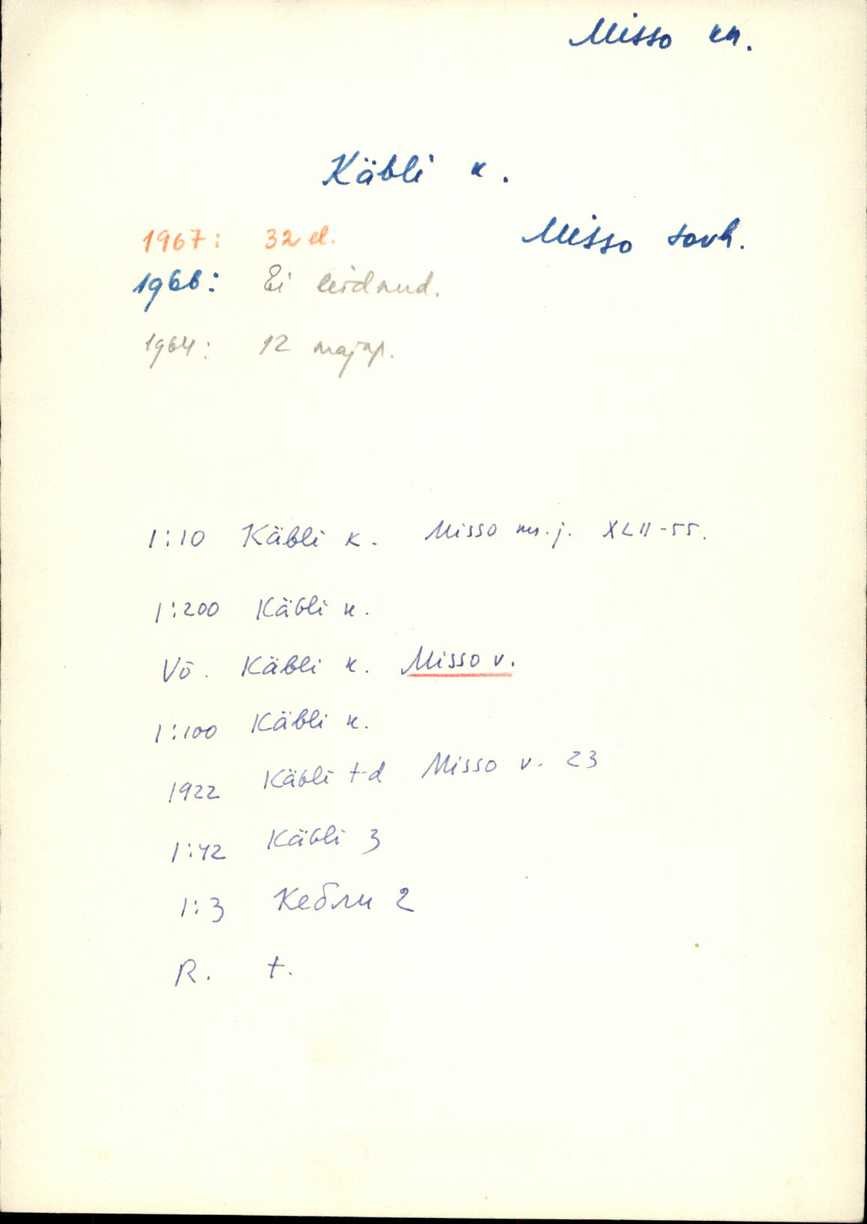 Misso kn.
Käbli k.
1967: 32 el. Misso sovh.
1966: Ei leidnud.
1964: 12 majap.
1:10 Käbli k. Misso XLII-55.
1:200 Käbli k.
Võ. Käbli k. Misso v.
1:100 Käbli k.
1922 Käbli t-d Misso v. 23
1:42 Käbli 3
1:3 Кебли 2
R. t.